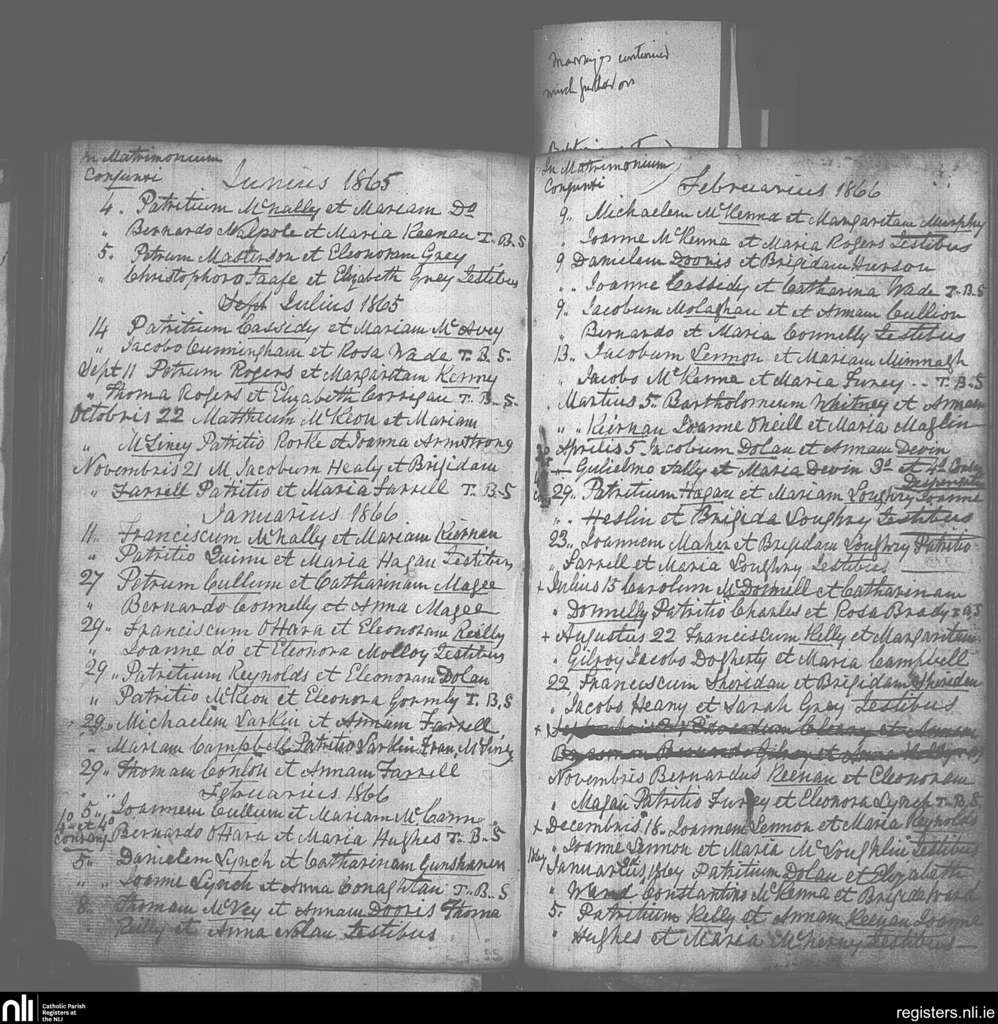 Marriages continued
much further on
In Matrimonium
Conjunxi
Junius 1865
4. Patritium McNally et Mariam Do
" Bernardo Malpole et Maria Keenan T. B. S
5. Petrum Masterson et Eleonoram Grey
" Christophoro Taafe et Elizabeth Grey Testibus
Julius 1865
14 Patritium Cassedy et Mariam McAvey
" Jacobo Cunningham et Rosa Wade T. B. S.
Sept 11 Petrum Rogers et Margaretam Kenny
" Thoma Rogers et Elyabeth Corrigan T. B. S.
Octobris 22 Mattheum McKeon et Mariam
" McGiney Patritio Rorke et Joanna Armstrong
Novembris 21 Jacobum Healy et Brigidam
" Farrell Patritio et Maria Farrell T. B. S
Januarius 1866
11 Franciscum McNally et Mariam Kiernan
" Patritio Quinn et Maria Hagan Testibus
27 Petrum Cullum et Catharinam Magee
" Bernardo Connelly et Anna Magee
29 " Franciscum OHara et Eleonoram Reilly
" Joanne Do et Eleonora Molloy Testibus
29 " Patritium Reynolds et Eleonoram Dolan
" Patritio McKeon et Eleonora Gormly T. B. S
29 " Michaelem Larkin et Annam Farrell
" Mariam Campbell Patritio Larkin
29 " Thomam Conlon et Annam Farrell
Februarius 1866
5 " Joannem Cullum et Mariam McCann
3o et 4o
Consang
Bernardo OHara et Maria Hughes T. B. S
5 " Danielem Lynch et Catharinam Gunshanan
" Joanne Lynch et Anna Conaghtan T. B. S
8 " Thomam McVey et Annam Dooris Thoma
Reilly et Anna Nolan Testibus
In Matrimonium
Conjunxi
Februarius 1866
9 " Michaelem McKenna et Margaretam Murphy
" Joanne McKenna et Maria Rogers Testibus
9 Danielem Dooris et Brigidam Hueson
" Joanne Cassedy et Catharina Wade T. B. S
9 " Jacobum Molaghan et et Annam Cullion
" Bernardo et Maria Connelly Testibus
13 " Jacobum Lennon et Mariam Mimnagh
" Jacobo McKenna et Maria Furey T. B. S
Martius 5 " Bartholomeum Whitney et Annam
" " Kiernan Joanne Oneill et Maria Maglin
Aprilis 5 Jacobum Dolan et Annam Devin
Gulielmo Nally et Maria Devin 3o et 4o Consang
Dispensatis
29 " Patritium Hagan et Mariam Loughry Joanne
" Heslin et Brigida Loughry Testibus
23 " Joannem Maher et Brigidam Loughry Patritio
" Farrell et Maria Loughry Testibus
+ Julius 15 Carolum McDonnell et Catharinam
" Donnelly Patritio Charles et Rosa Brady T. B. S
+ Augustus 22 Franciscum Kelly et Margaretam
" Gilroy Jacobo Dogherty et Maria Campbell
22 " Franciscum Sheridan et Brigidam Sheridan
" Jacobo Heany et Sarah Grey Testibus
Novembris Bernardus Keenan et Eleonoram
" Magan Patritio Furey et Eleonora Lynch T. B. S.
+ Decembris 18. Joannem Lennon et Maria Reynolds
" Joanne Lennon et Maria McLoughlin Testibus
Januarius 1867 Patritium Dolan et Elyzabeth
" Ward Constantino McKenna et Brigida Ward
5. Patritium Kelly et Annam Keegan Joanne
" Hughes et Maria McNerny Testibus
nli Catholic Parish Registers at the NLI
registers.nli.ie